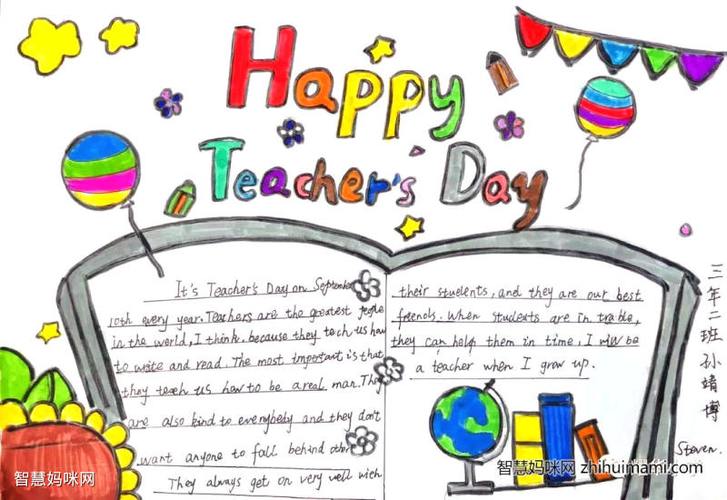 Happy
Teacher's Day
It's Teacher's Day on September
10th every year. Teachers are the greatest people
in the world, I think. because they tech us how
to write and read. The most important is that
they teach us how to be a real man. They
are also kind to everybody and they don't
want anyone to fall behind other
They always get on very well with
their students, and they are our best
friends. When students are in trable,
they can help them in time. I will be
a teacher when I grow up.
三年二班孙靖博
Steven.
智慧妈咪网
智慧妈咪网 zhihuimami.com